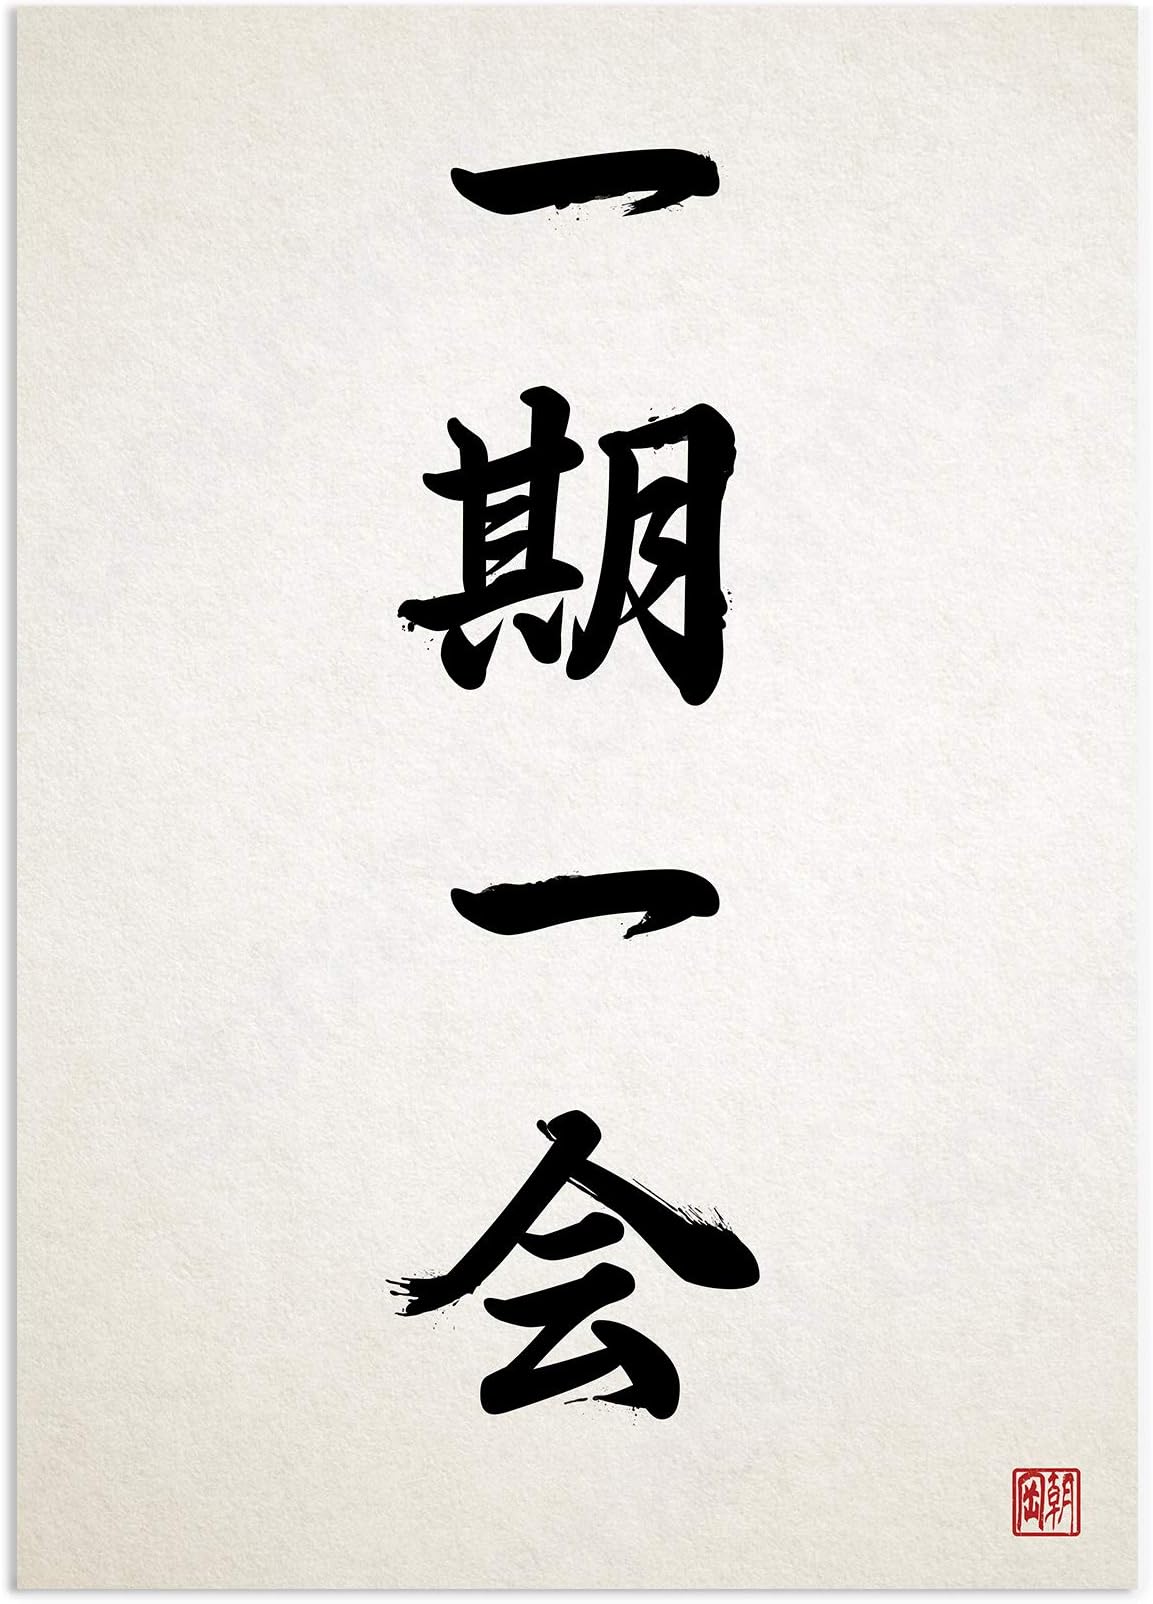 一期一会
朝岡